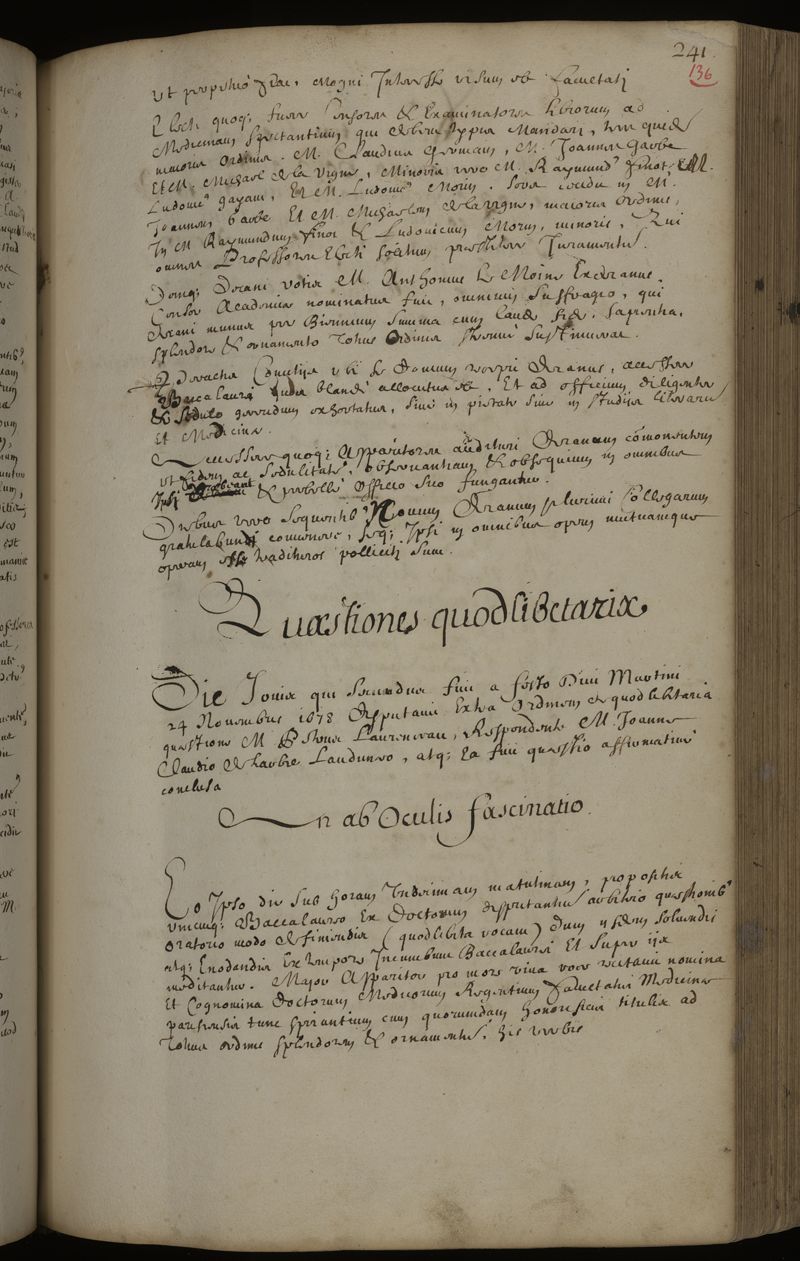 241.
136
ut perpetuò Magni Interesse visum est facultatj
Electi quoq; fuere Censores & Examinatores librorum ad
Medicinam spectantium qui debent typis Mandari, hinc quidem
maioris ordinis. M. Claudius Germain, M. Joannes Garbe
Et M. Michael de la Vigne, Minoris vero M. Raymund9 finot, M.
Ludouic9 gayant, Et M. Ludouic9 Morin. in M.
Joannem Garbe Et M. Michaelem de la vigne, maioris ordinis,
In M Raymundum finot & Ludouicum Morin, minoris, Qui
omnes Professores Electi solitum prestitere Juramentum.
Deniq; Decani votis M. Anthonius Le Moine Exdecanus.
Censor Academiæ nominatus fuit, omnium suffragio, qui
decani munus per Biennium summa cum laude fide, sapientia,
splendore & ornamento totius ordinis sustinuerat.
Peractis Comitijs ubi se Domum recepit Decanus, accessere
Baccalaurei quos blande allocutus est, Et ad officium diligenter
& sedulo gerendum exhortatus, sive in pietate sive in studijs litterarum
Et Medicinæ.
Accessere quoq; Apparitores audituri Decanum comonentem
ut fidem ac sedulitatem, observantiam & obsequium in omnibus
Ipsi & probe officio suo fungantur.
Diebus vero sequentib9 Novum Decanum plurimi Collegarum
gratulabundi convenere, seq; Ipsi in omnibus opem mutuamque
operam esse tradituros polliciti sunt.
Quæstiones quodlibetariæ
Die Jovis qui secundus fuit a festo Divi Martini
24 Novembris 1678 disputavit Extra Ordinem de quodlibetaria
quæstione M. Laurenceau, Respondente M. Joanne
Claudio de Laudunæo, atq; Ea fuit quæstio affirmative
conclusa
An ab Oculis fascinatio.
Eo Ipso die sub horam Undecimam matutinam, propositis
unicuiq; Baccalaureo Ex Doctorum disputantium arbitrio quæstionib9
oratorio modo definiendis (quodlibeta vocant) dum ijsdem solvendis
atq; Enodandis Ex tempore Incumbunt Baccalaurei Et super ijs
meditantur. Major Apparitor pro more viva voce recitavit nomina
Et Cognomina Doctorum Medicorum Regentium Facultatis Medicinæ
parisiensis tunc spirantium cum quorumdam honorificis titulis ad
totius ordinis splendorem & ornamentum, his verbis